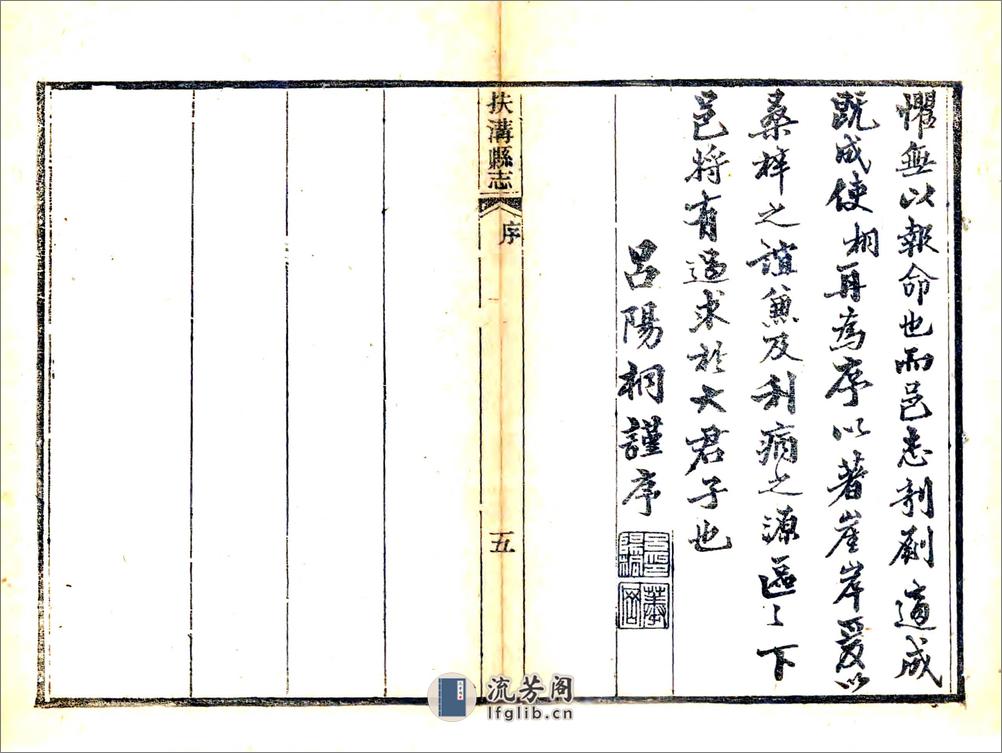 懼無以報命也而邑志剞劂適成
既成使桐再為序以著崖岸爰以
桑梓之誼兼及利病之源區〻下
邑將有過求於大君子也
呂陽桐謹序
扶溝縣志
序
五
流芳阁
lfglib.cn